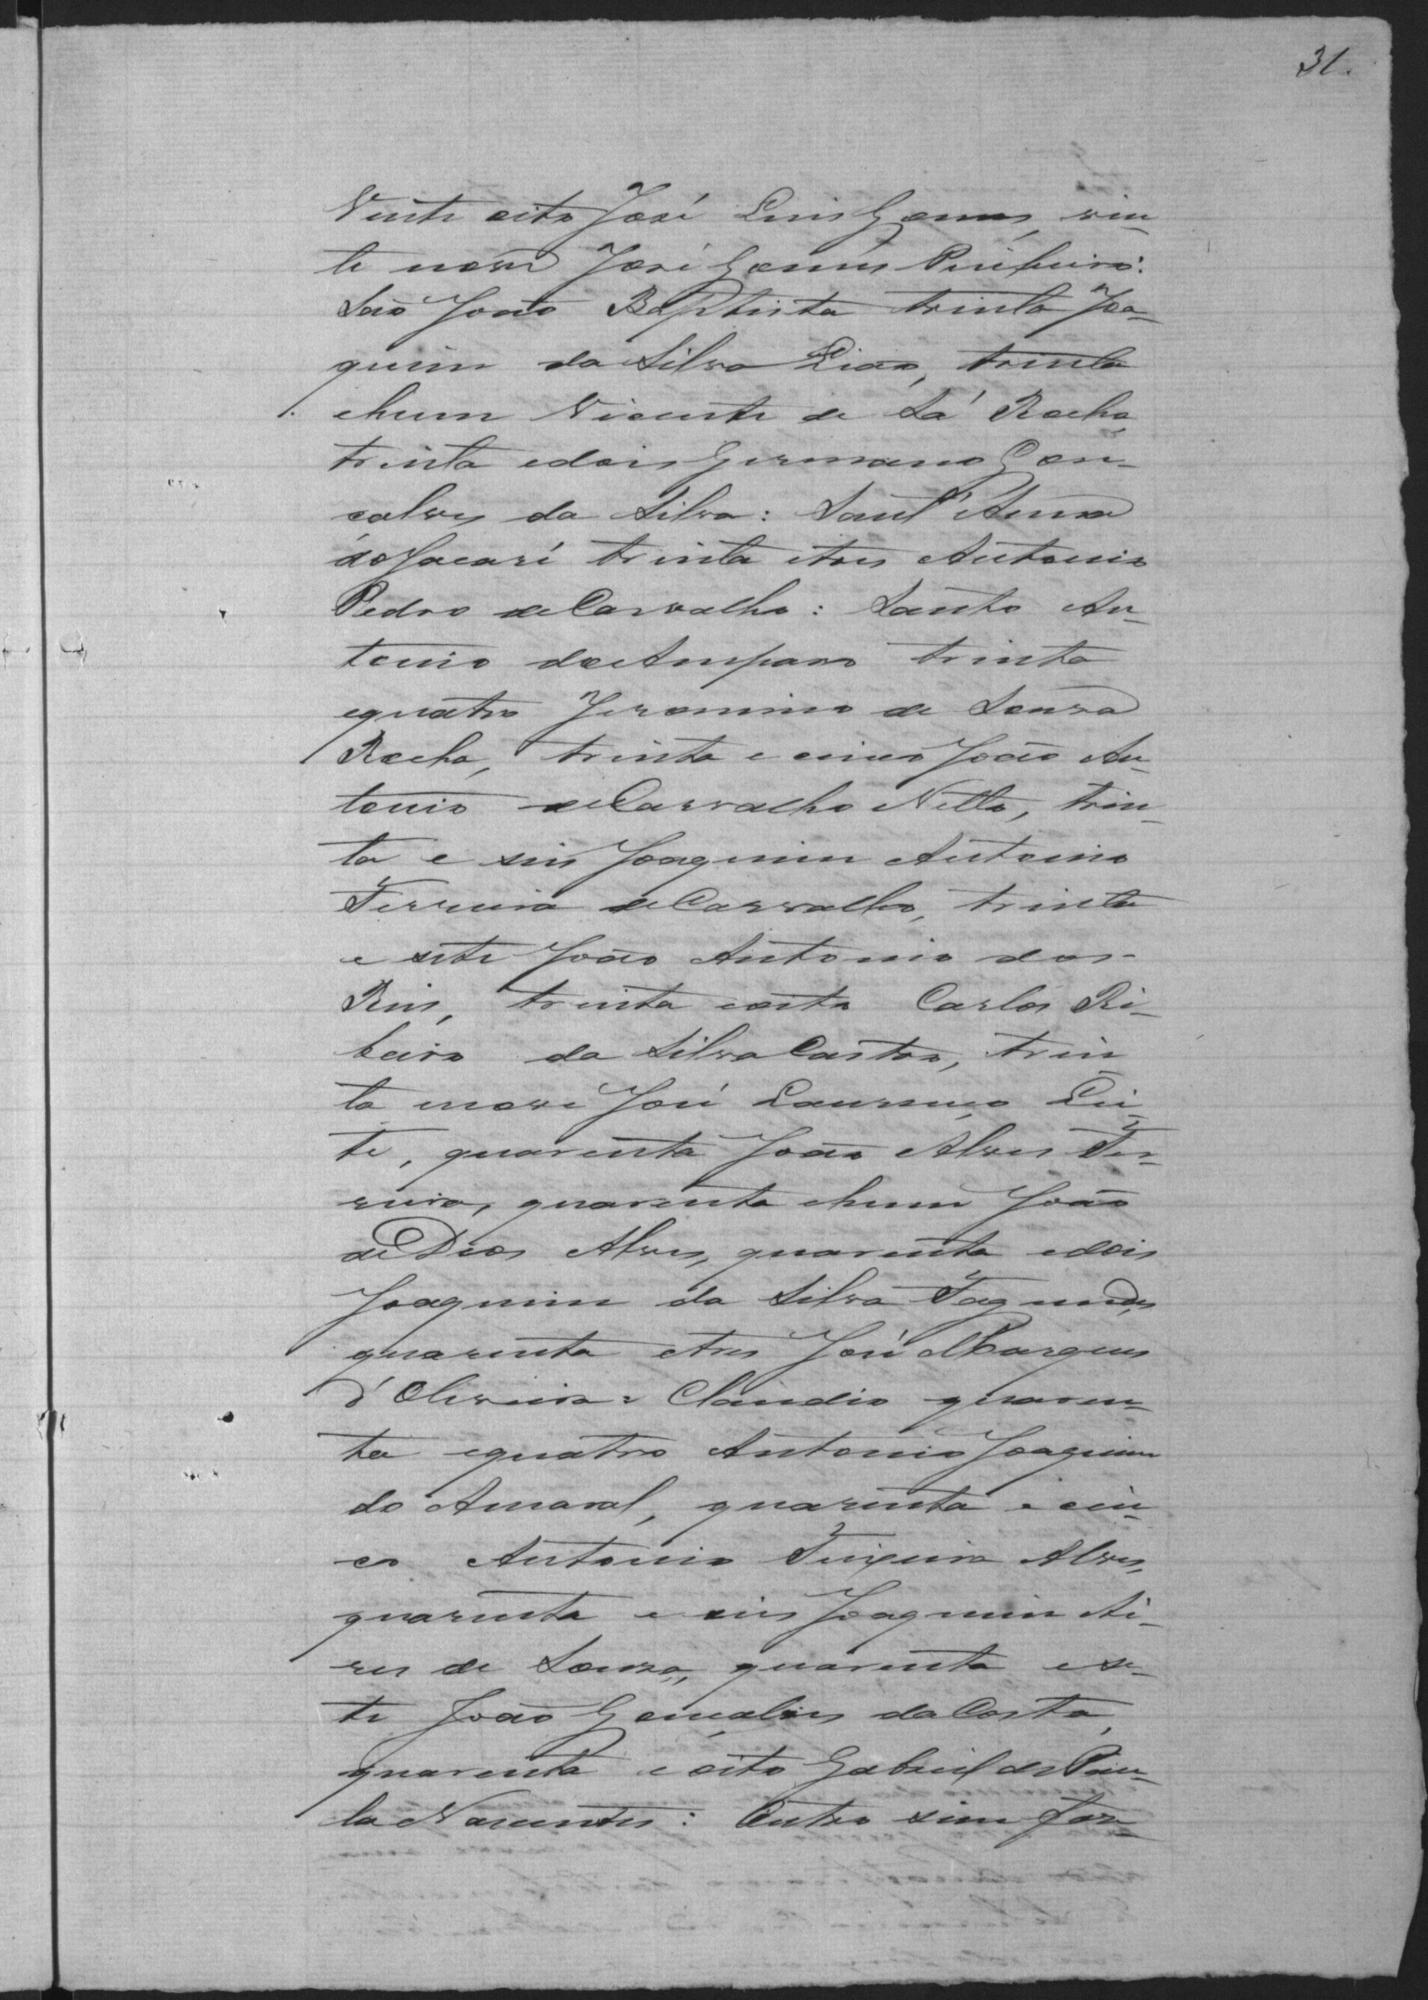 31.
Vinte oito José Luis Gomes, vin-
te nove José Gomes Pinheiro:
São João Baptista trinta Joa-
quim da Silva Leão, trinta
ehum Vicente de Sá Rocha,
trinta edois Germano Gon-
calves da Silva: Sant'Anna
do Jacaré trinta etres Antonio
Pedro de Carvalho: Santo An-
tonio do Amparo trinta
equatro Jeronimo de Souza
Rocha, trinta e cinco João An-
tonio de Carvalho Netto, trin-
ta e seis Joaquim Antonio
Ferreira de Carvalho, trinta
e sete João Antonio dos
Reis, trinta eoito Carlos Ri-
beiro da Silva Castro, trin
ta enove José Lourenço Lei-
te, quarenta João Alves Fer-
reira, quarenta ehum João
de Deos Alves, quarenta edois
Joaquim da Silva Fagundes,
quarenta etres José Marques
d'Oliveira: Claudio quaren-
ta equatro Antonio Joaquim
do Amaral, quarenta e cin-
co Antonio Teixeira Alves,
quarenta e seis Joaquim Ai-
res de Souza, quarenta e se-
te João Gonçalves da Costa,
quarenta e oito Gabriel de Pau-
la Nascentes: Outro sim faz-